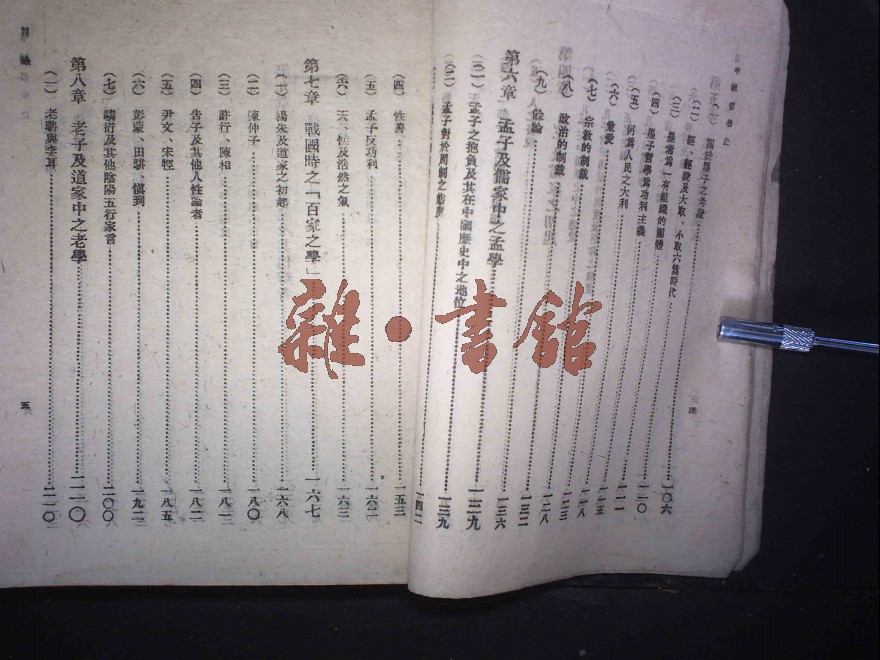 中國哲學史
（一）關於墨子之考證
（二）經、經說及大取、小取六篇時代
（三）墨者為一有組織的團體……一〇六
（四）墨子哲學為功利主義
（五）何為人民之大利……一一一
（六）兼愛……一一五
（七）宗教的制裁……一一八
（八）政治的制裁……一二三
（九）餘論……一二八
第六章 孟子及儒家中之孟學……一三九
（一）孟子之抱負及其在中國歷史中之地位……一三九
（二）孟子對於周制之態度……一四二
（四）性善……一五三
（五）孟子反功利……一六二
（六）天、性及浩然之氣……一六三
第七章 戰國時之「百家之學」……一六七
（一）楊朱及道家之初起……一六八
（二）陳仲子……一八〇
（三）許行、陳相……一八二
（四）告子及其他人性論者……一八二
（五）尹文、宋牼……一八五
（六）彭蒙、田駢、慎到……一九二
（七）騶衍及其他陰陽五行家言……二〇〇
第八章 老子及道家中之老學……二一〇
（一）老聃與李耳……二一〇
目錄
五
雜·書館